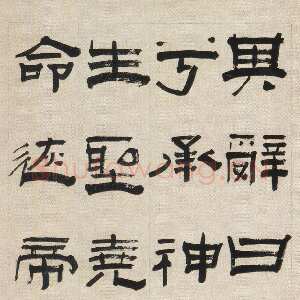 其辭曰
亏承神
生聖堯
命帝